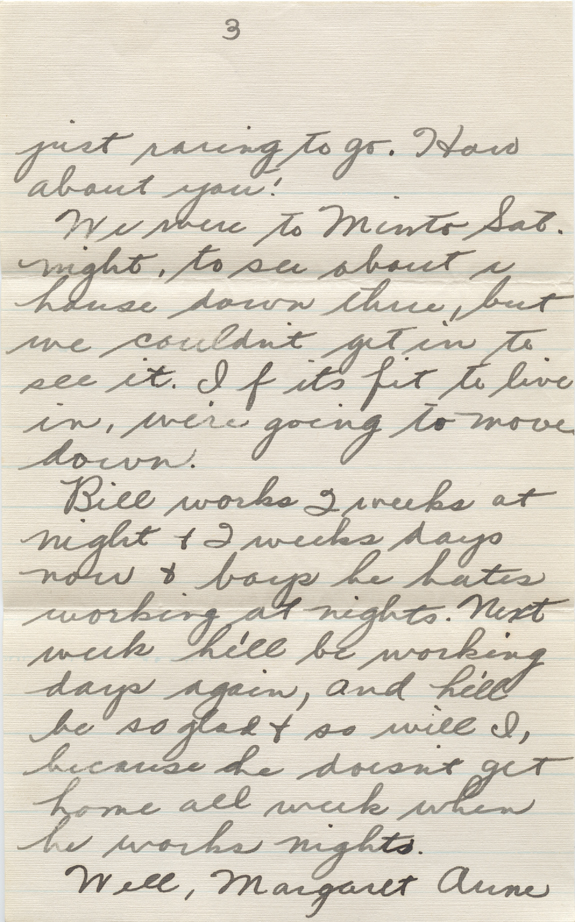 3
just raring to go. How
about you!
We were to Minto Sat.
night, to see about a
house down there, but
we couldn't get in to
see it. If it's fit to live
in, we're going to move
down.
Bill works 2 weeks at
night & 2 weeks days
now & boys he hates
working at nights. Next
week he'll be working
days again, and he'll
be so glad & so will I,
because he doesn't get
home all week when
he works nights.
Well, Margaret Anne